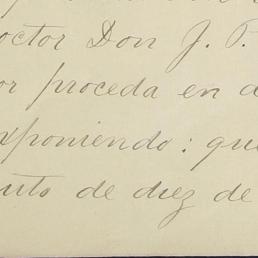 octor Don J. P.
or proceda en d
xponiendo: que
uto de diez de